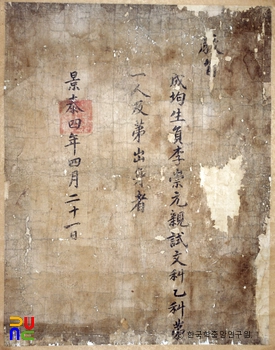 敎旨
成均生員李崇元親試文科乙科第
一人及第出身者
景泰四年四月二十一日
한국학중앙연구원